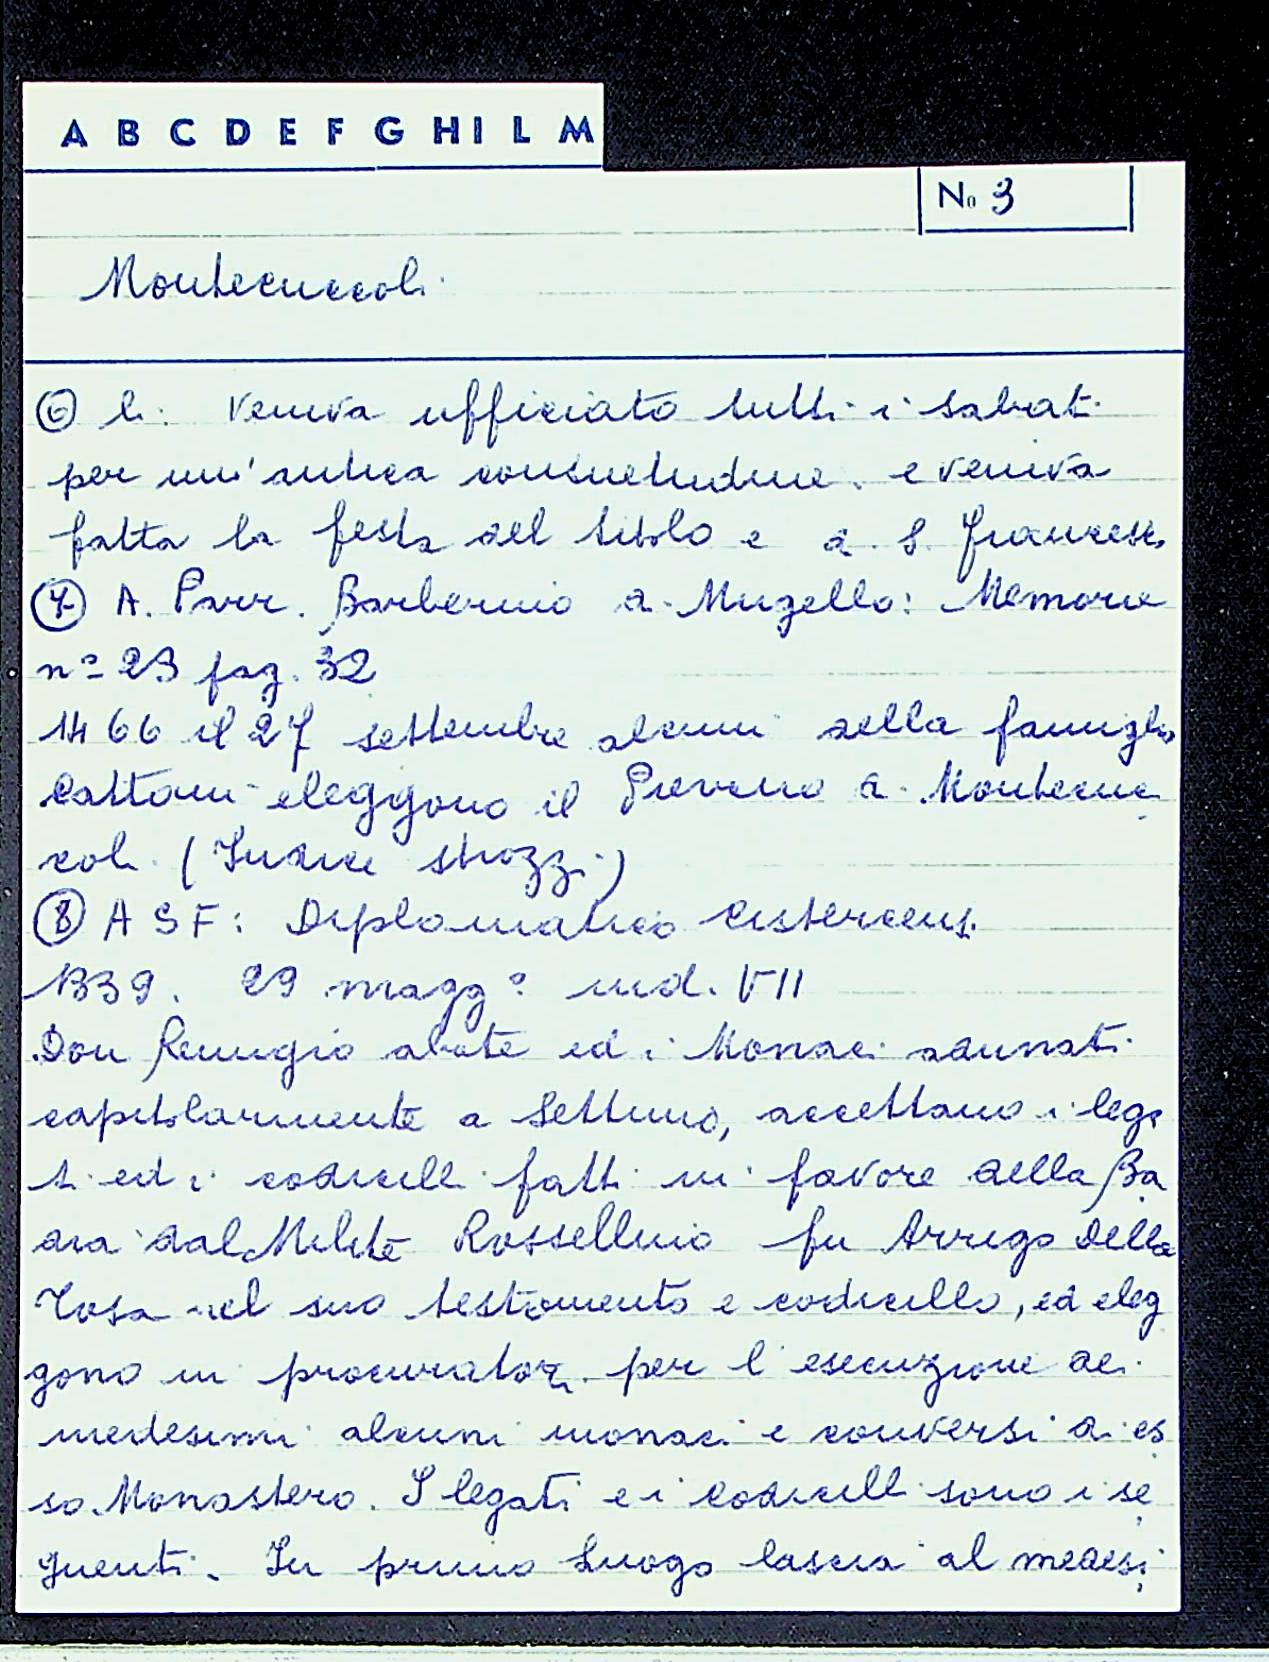 A B C D E F G H I L M
No 3
Montecuccoli
⑥ li: veniva ufficiato tutti i sabati
per un'antica consuetudine. e veniva
fatta la festa del titolo e di S. Francesco
⑦ A. Parr. Barberino di Mugello: Memorie
nº 23 pag. 32
1466 il 27 settembre alcuni della famiglia
Cattani eleggono il Pievano di Montecuc
coli (Indice Strozzi)
⑧ A S F: Diplomatico Cistercensi
1339. 29 maggº ind. VII
Don Remigio abate ed i Monaci adunati
capitolarmente a Settimo, accettano i lega
ti ed i codicilli fatti in favore della Ba
dia dal Milite Rossellino fu Arrigo Della
Tosa nel suo testamento e codicillo, ed eleg
gono in procuratori per l'esecuzione dei
medesimi alcuni monaci e conversi di es
so Monastero. I legati e i codicilli sono i se
guenti. In primo luogo lascia al medesi